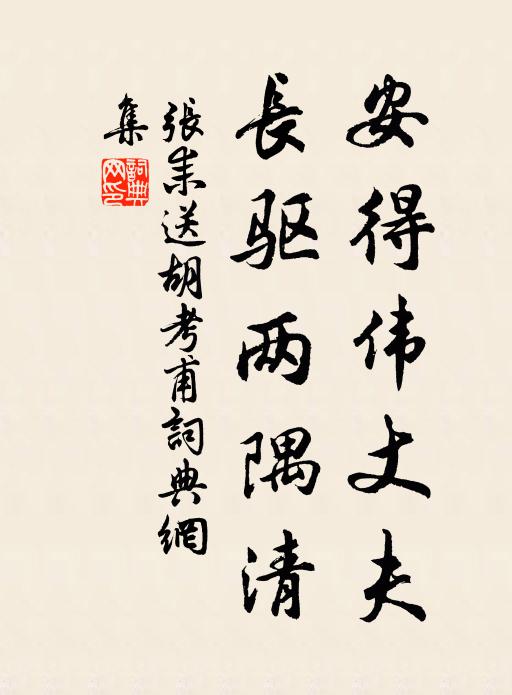 安得伟丈夫
長驱两隅清
張耒送胡考甫詞典網
集
詞典
网印